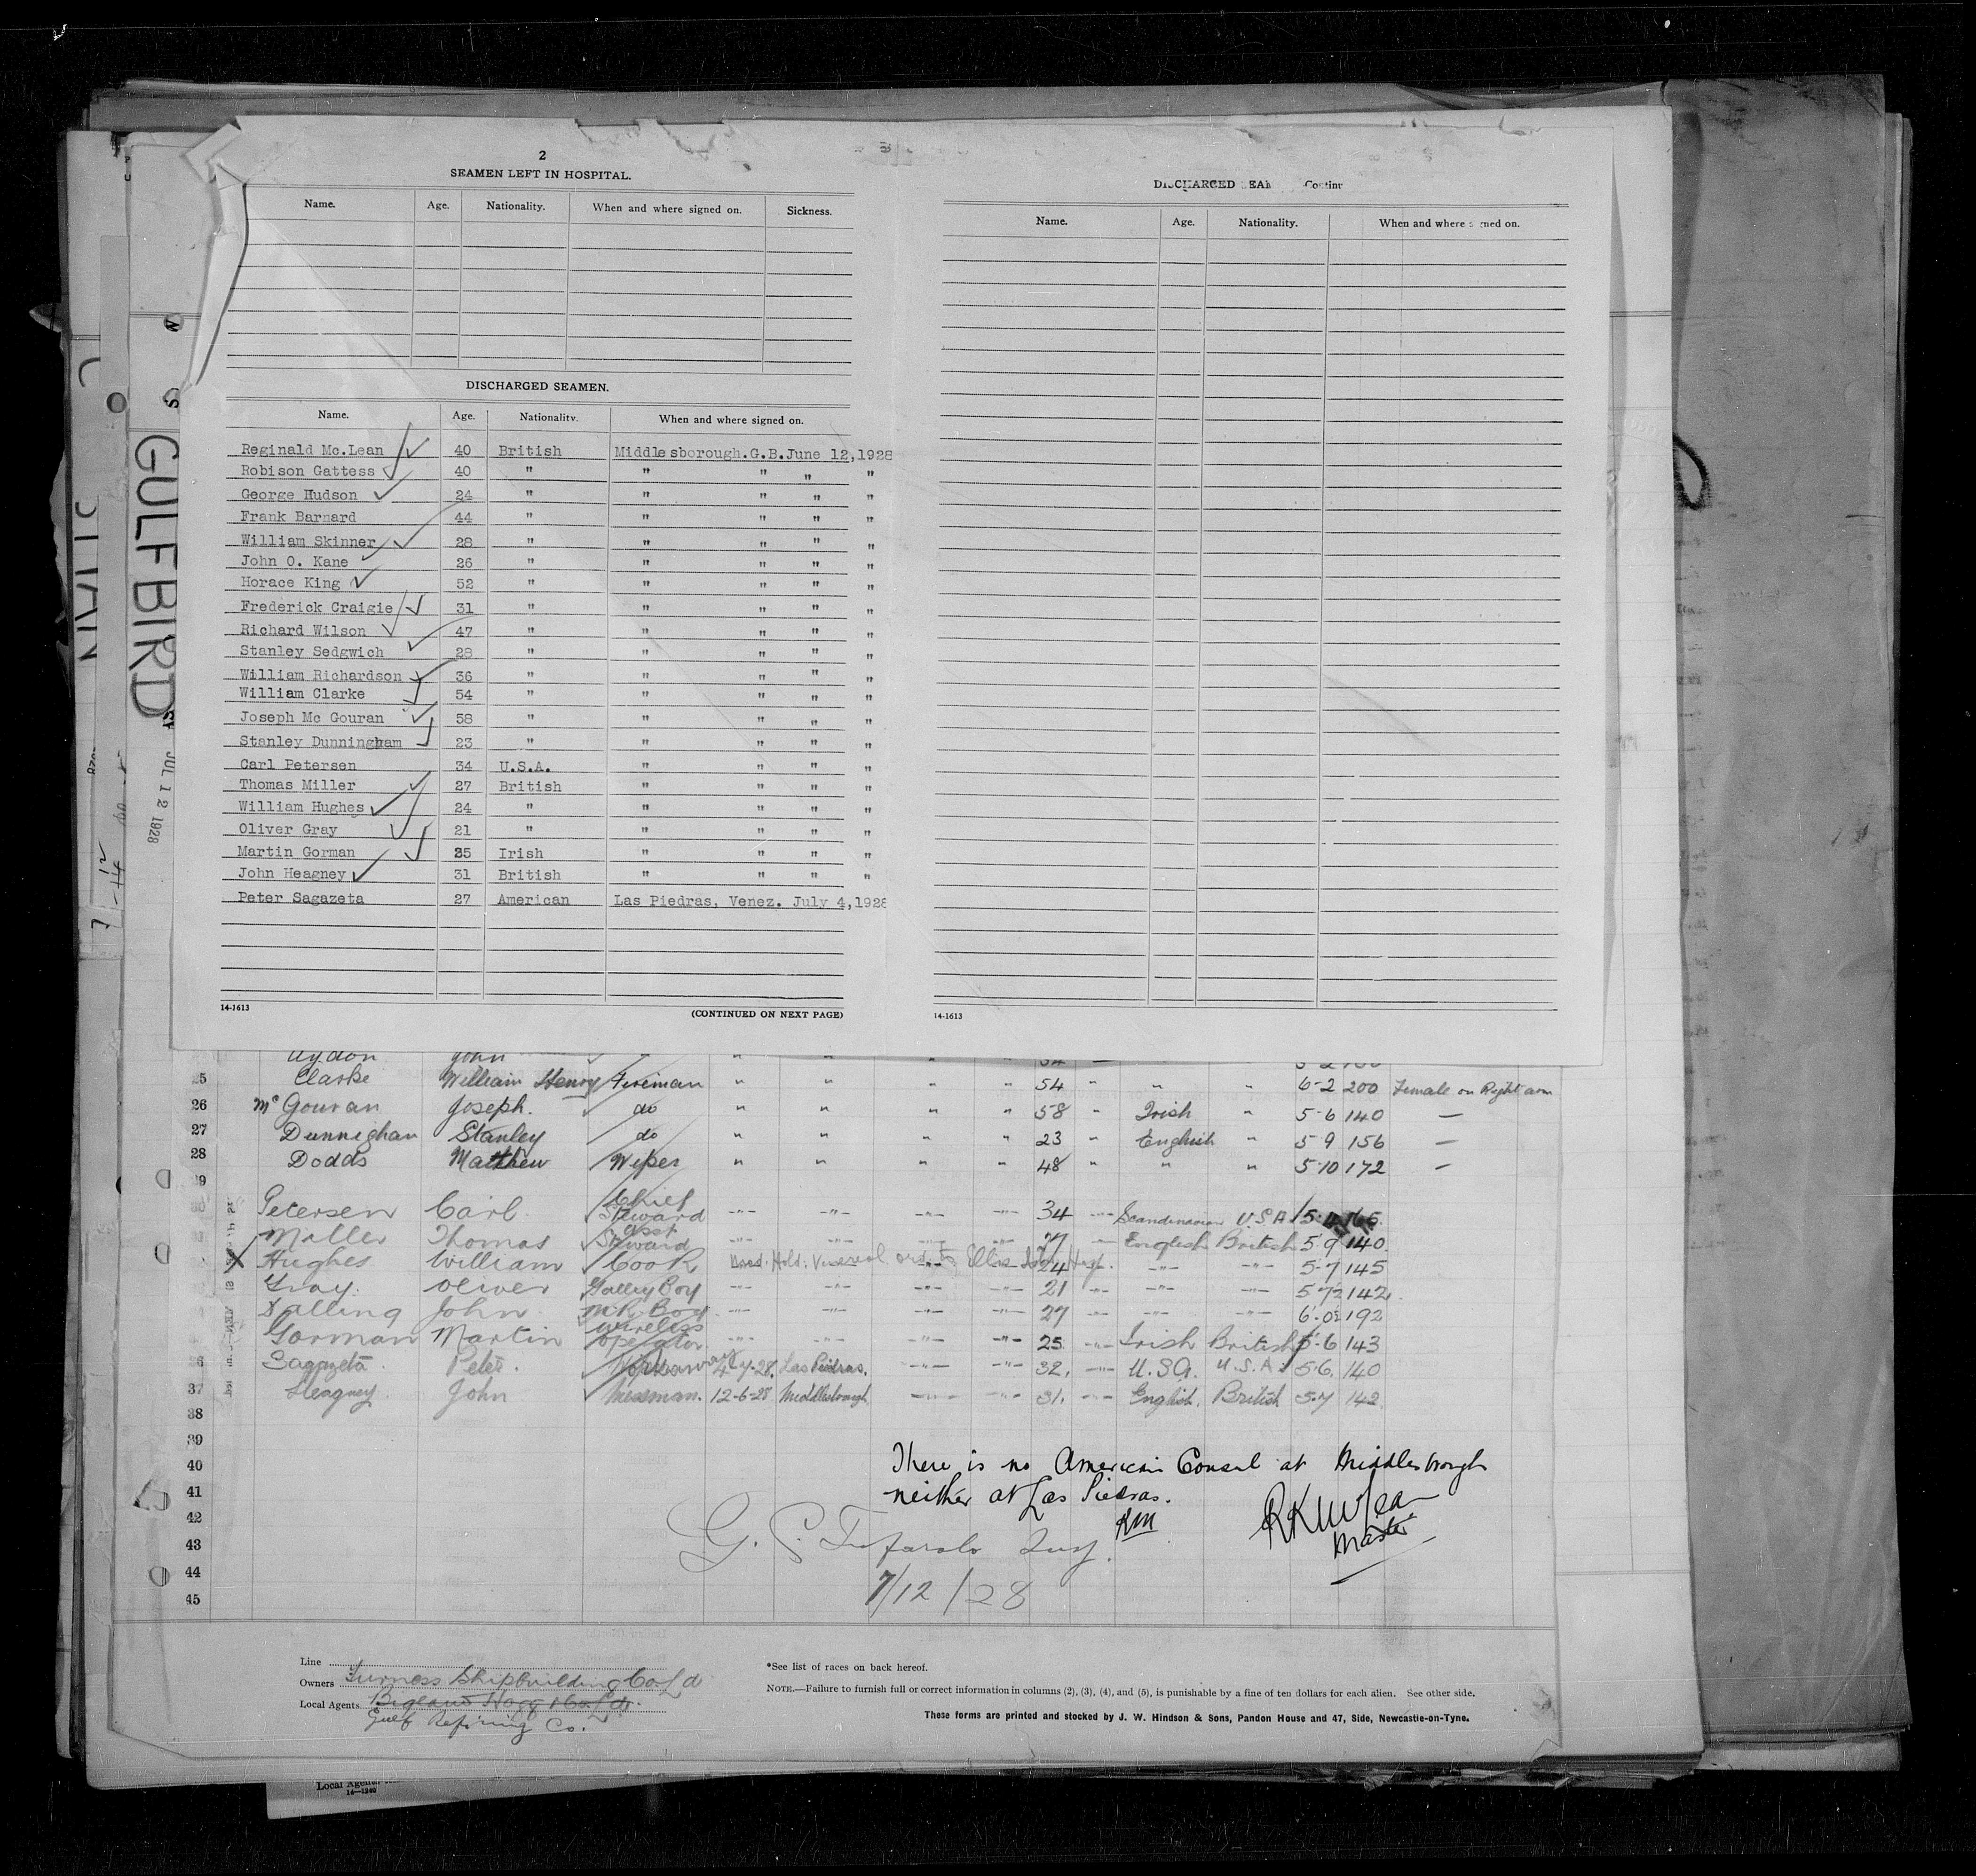 2
SEAMEN LEFT IN HOSPITAL.
Name. Age. Nationality. When and where signed on. Sickness.
DISCHARGED SEAMEN.
Name. Age. Nationality. When and where signed on.
Reginald Mc.Lean 40 British Middlesborough.G.B.June 12,1928
Robison Gattess 40 " " " " "
George Hudson 24 " " " " "
Frank Barnard 44 " " " " "
William Skinner 28 " " " " "
John O. Kane 26 " " " " "
Horace King 52 " " " " "
Frederick Craigie 31 " " " " "
Richard Wilson 47 " " " " "
Stanley Sedgwich 28 " " " " "
William Richardson 36 " " " " "
William Clarke 54 " " " " "
Joseph Mc Gouran 58 " " " " "
Stanley Dunningham 23 " " " " "
Carl Petersen 34 U.S.A. " " " "
Thomas Miller 27 British " " " "
William Hughes 24 " " " " "
Oliver Gray 21 " " " " "
Martin Gorman 25 Irish " " " "
John Heagney 31 British " " " "
Peter Sagazeta 27 American Las Piedras, Venez. July 4,1928
14-1613
(CONTINUED ON NEXT PAGE)
DISCHARGED
Name. Age. Nationality. When and where signed on.
14-1613
GULFBIRD
JUL 12 1928
John
25 Clarke William Henry Fireman " " " " 54 " " " 6-2 200 Female on Right arm
26 Mc Gouran Joseph. do " " " " 58 " Irish " 5-6 140 —
27 Dunnighan Stanley do " " " " 23 " English " 5-9 156 —
28 Dodds Matthew Wiper " " " " 48 " " " 5-10 172 —
Petersen Carl. Chief Steward -"- -"- -"- -"- 34 -"- Scandinavian U.S.A
Miller Thomas Asst Steward -"- -"- -"- -"- 27 -"- English British 5-9 140
X Hughes William Cook 24 -"- -"- 5-7 145
Gray. Oliver Galley Boy -"- -"- -"- -"- 21 -"- -"- -"- 5-7½ 142
Dalling John M.R. Boy -"- -"- -"- -"- 27 -"- -"- 192
Gorman Martin Wireless operator -"- -"- -"- -"- 25 -"- Irish British 5-6 143
Sagazeta Peter. Workaway 4-7-28. Las Piedras. -"- -"- 32. -"- U.S.A. U.S.A. 5-6. 140
37 Heagney John Messman. 12-6-28 Middlesbrough -"- -"- 31. -"- English. British 5-7 142
38
39
40
41
42
43
44
45
There is no American Consul at Middlesbrough
neither at Las Piedras.
RM
Master
7/12/28
Line
Owners Furness Shipbuilding Co Ld
Local Agents
Gulf Refining Co.
*See list of races on back hereof.
NOTE.—Failure to furnish full or correct information in columns (2), (3), (4), and (5), is punishable by a fine of ten dollars for each alien. See other side.
These forms are printed and stocked by J. W. Hindson & Sons, Pandon House and 47, Side, Newcastle-on-Tyne.
14—1240